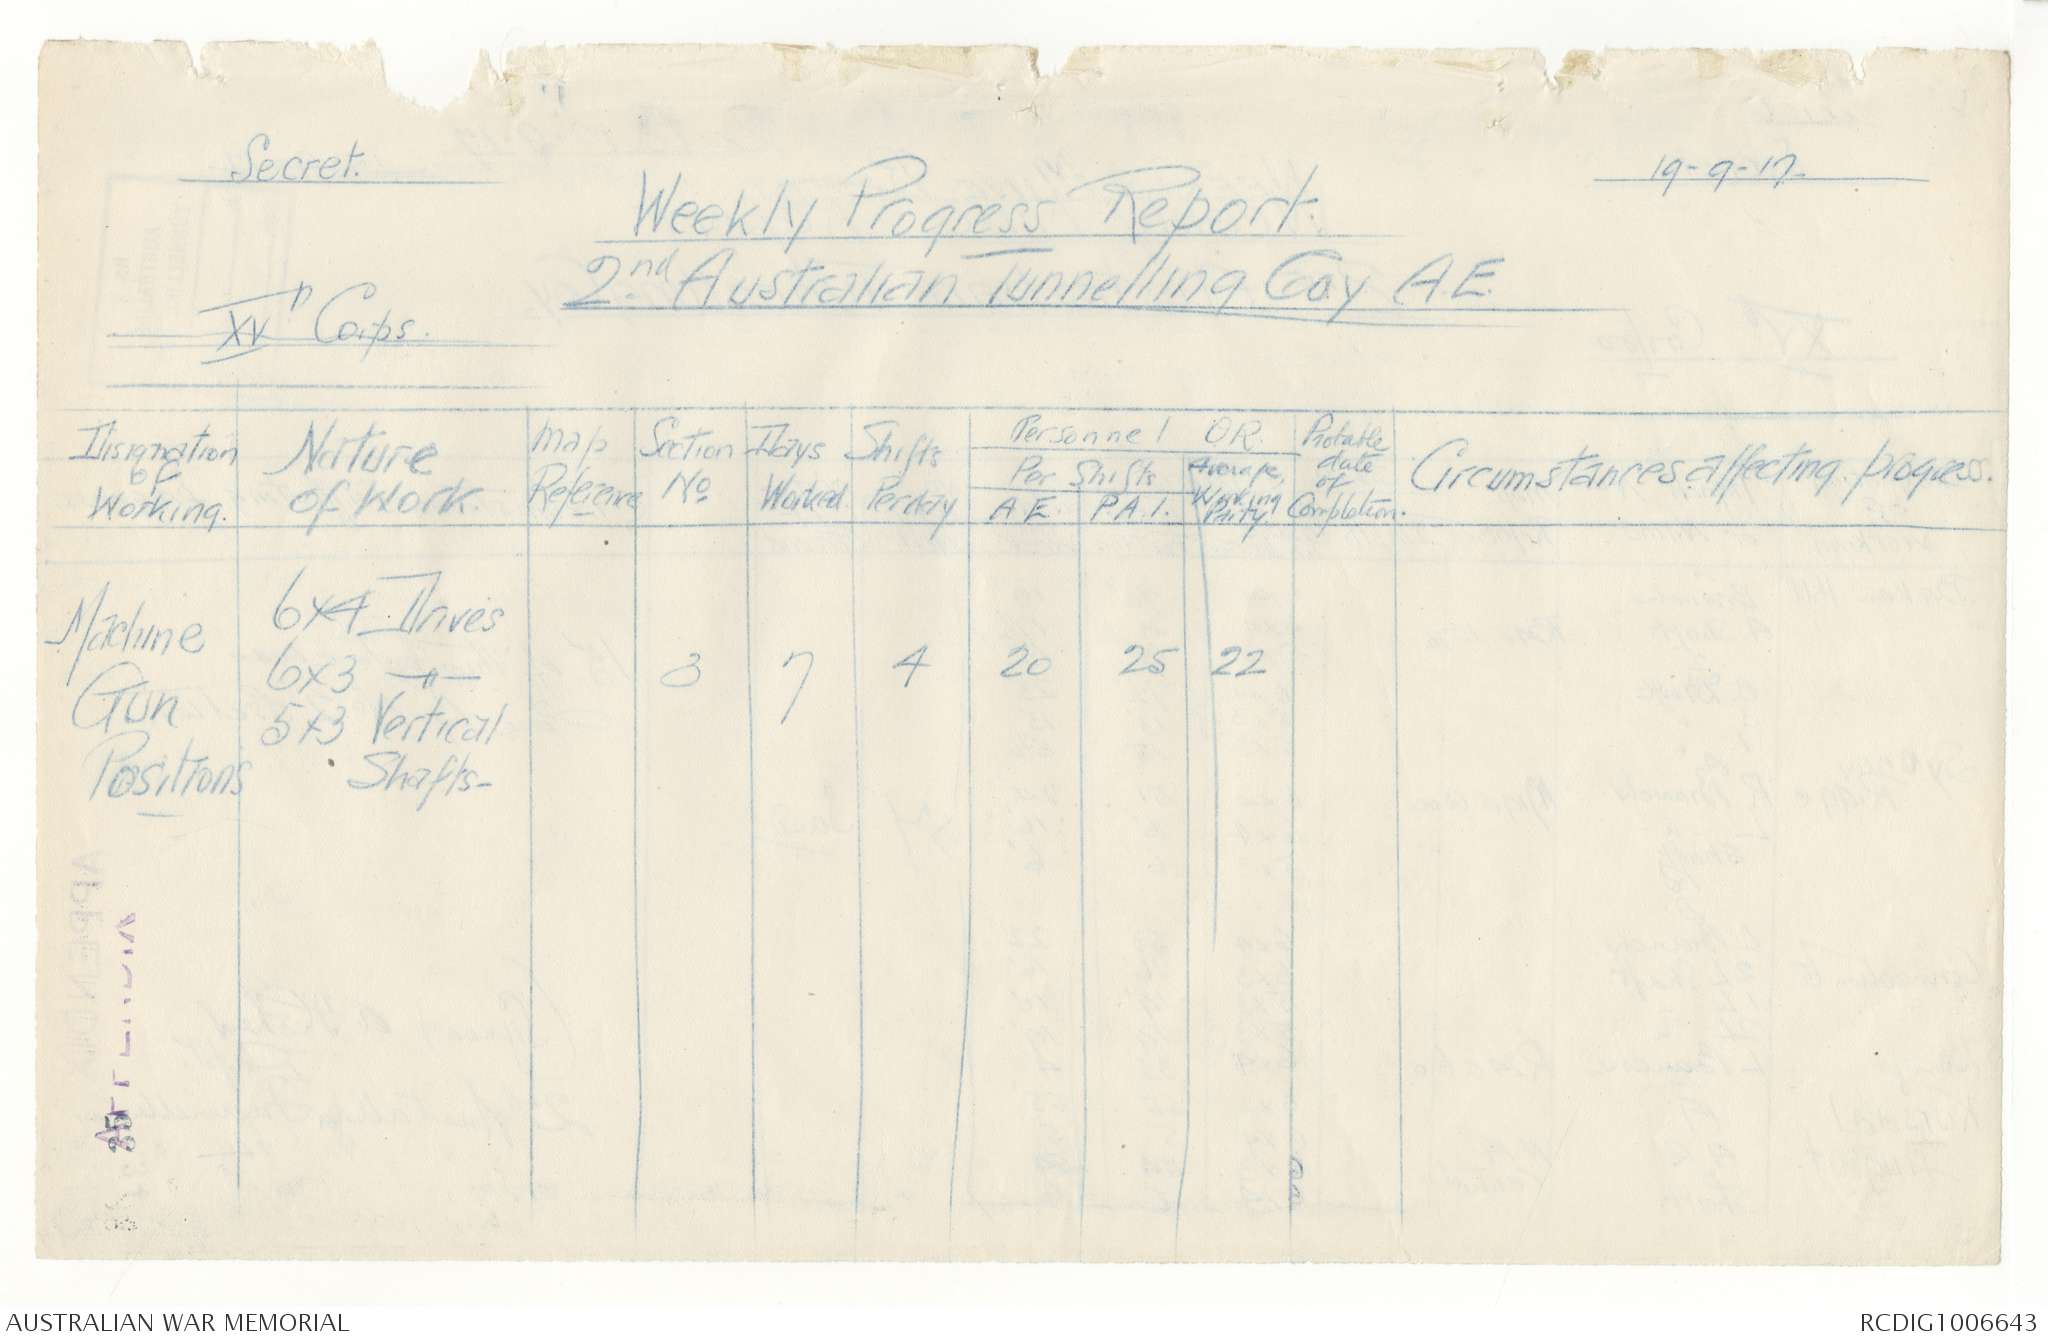 Secret.
19-9-17.
Weekly Progress Report.
2nd Australian Tunnelling Coy A.E.
XVth Corps.
Disignation of Working.
Nature of Work.
Map Reference
Section No
Days Worked
Shifts Perday
Personnel OR.
Per Shifts
A.E.
P.A.I.
Average, Working Party
Probable date of Completion.
Circumstances affecting progress.
Machine Gun Positions
6x4 Drives
6x3 -"-
5x3 Vertical Shafts-
3
7
4
20
25
22
AUSTRALIAN WAR MEMORIAL
RCDIG1006643